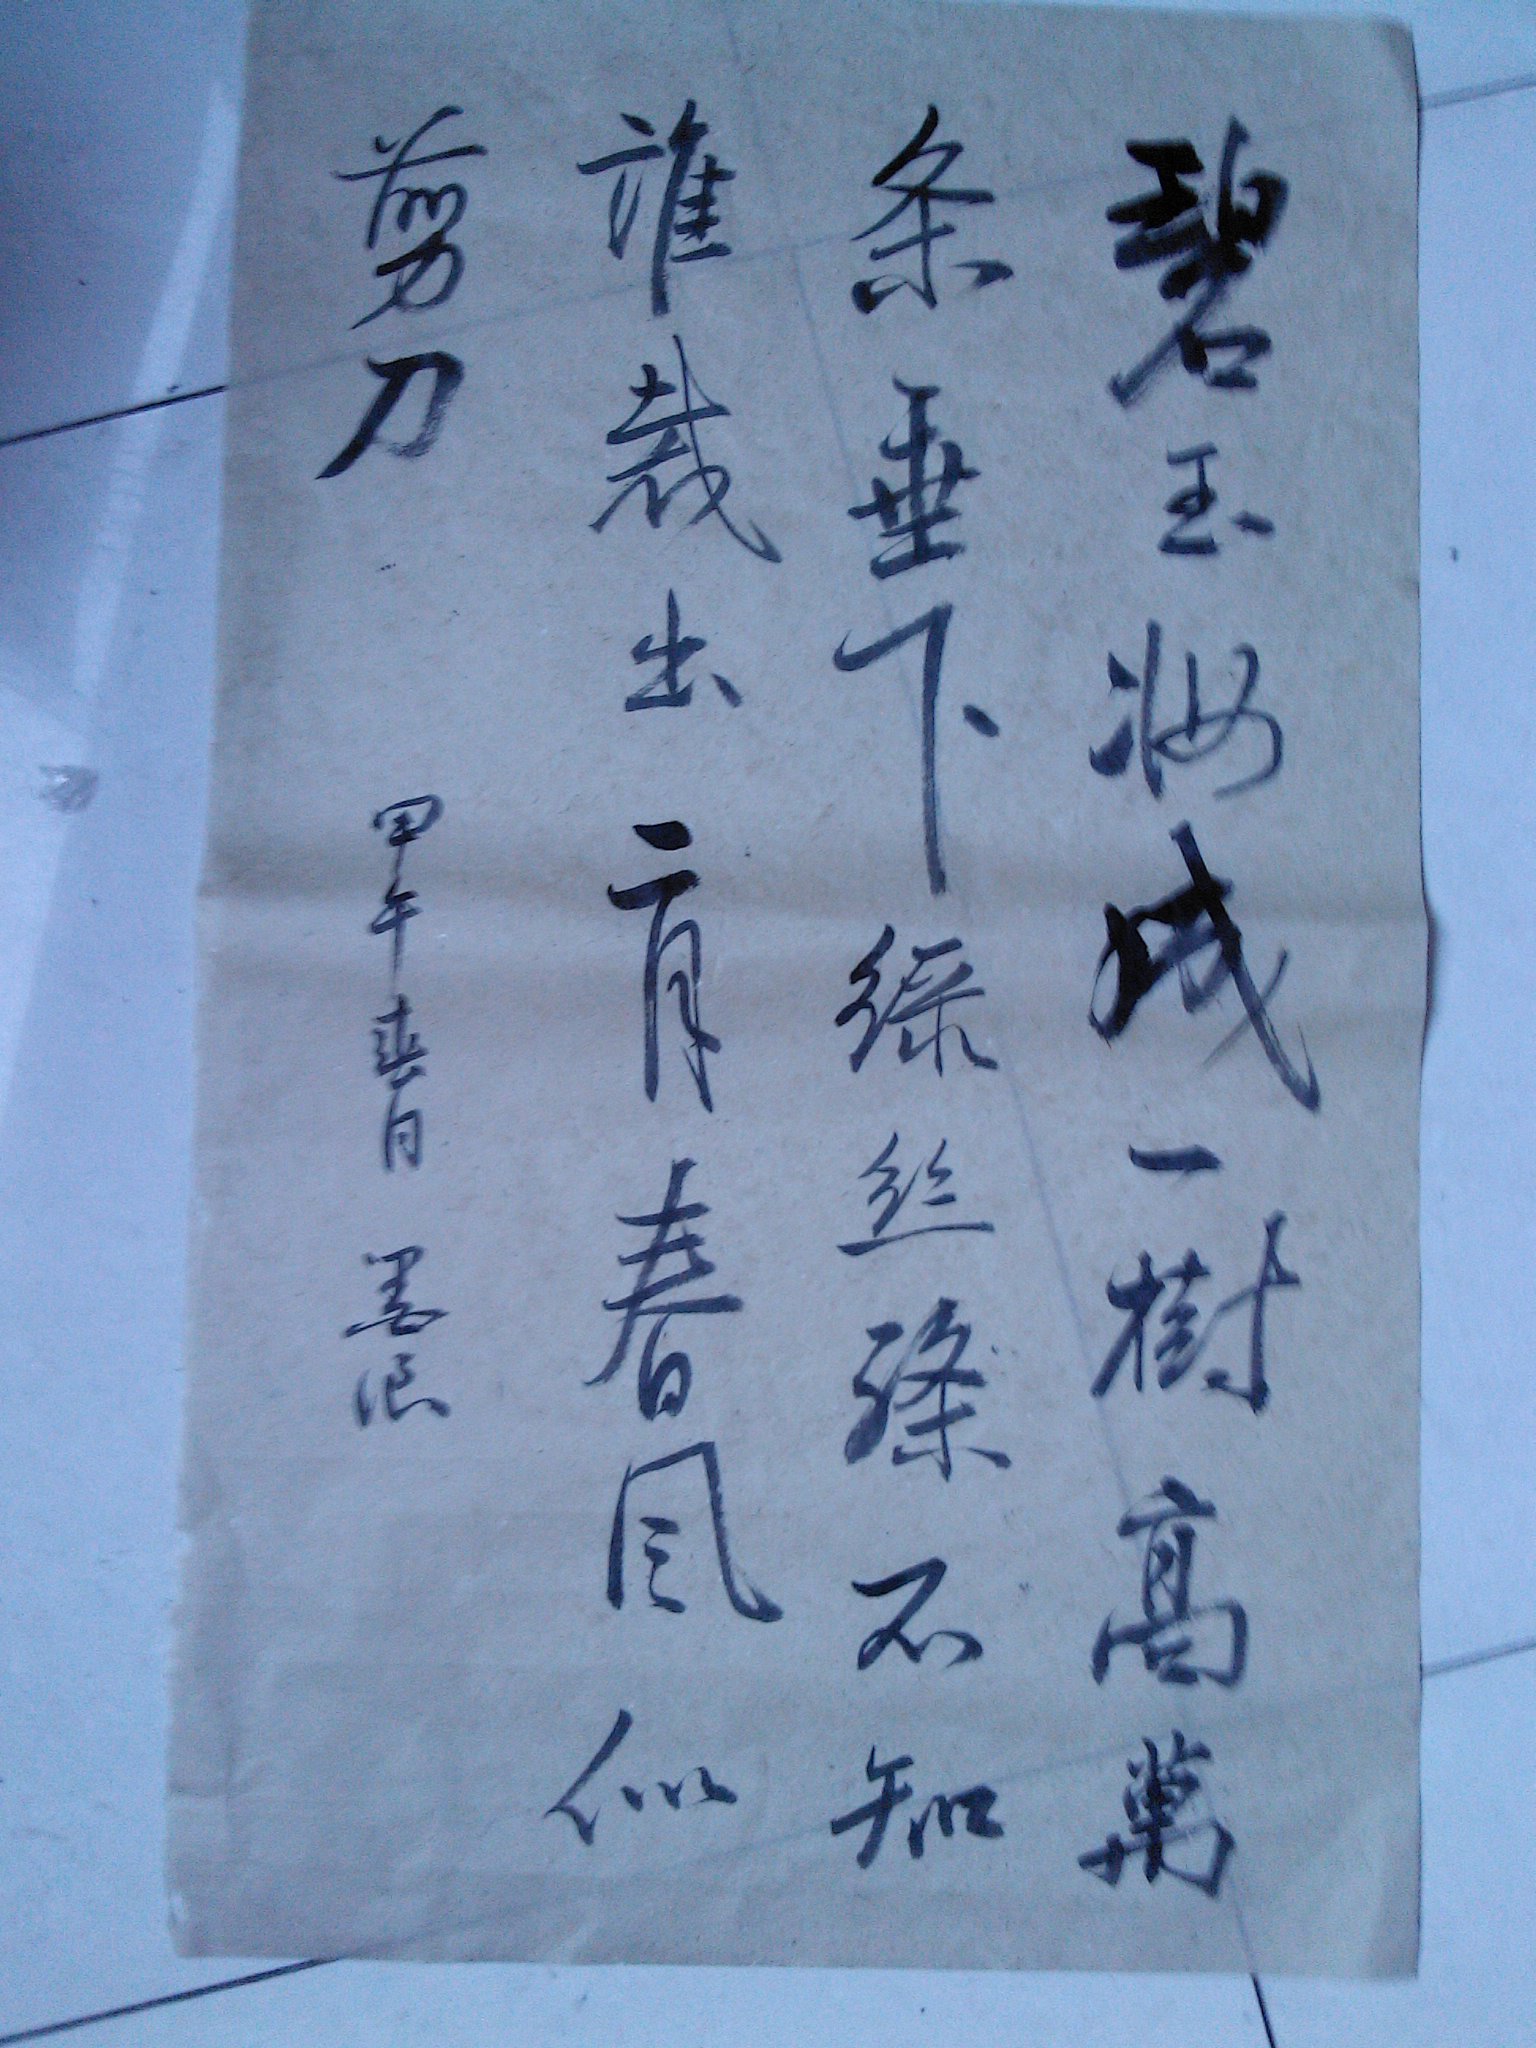 碧玉妝成一樹高萬
条垂下綠丝絛不知
誰裁出二月春風似
剪刀
甲午春月 墨浪